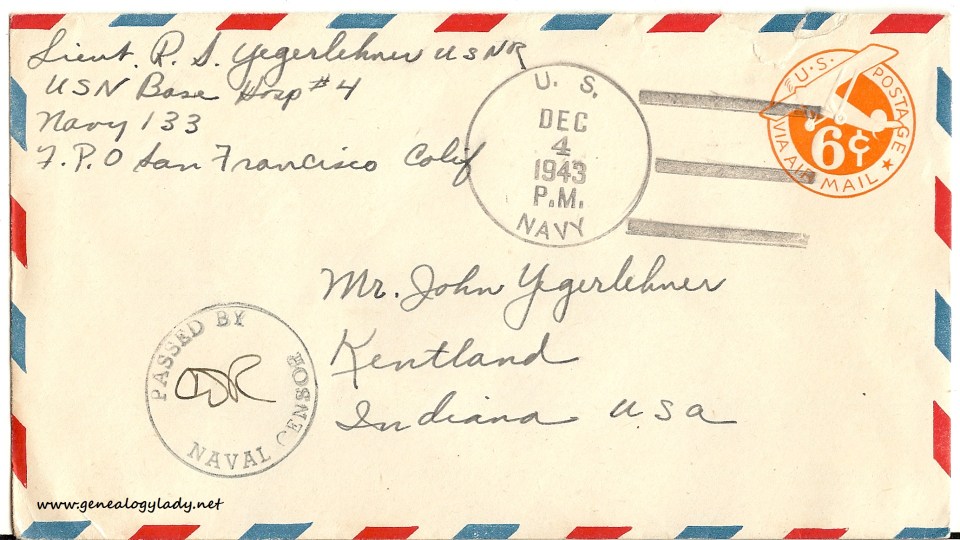 Lieut. R. S. Yegerlehner USNR
USN Base Hosp #4
Navy 133
F.P.O San Francisco Calif
U. S.
DEC
4
1943
P.M.
NAVY
U.S. POSTAGE
6¢
VIA AIR MAIL
Mr. John Yegerlehner
Kentland
Indiana USA
PASSED BY
NAVAL CENSOR
www.genealogylady.net